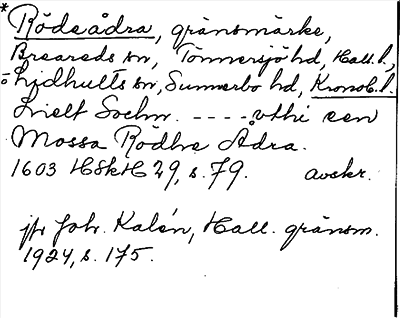 * Rödeådra, gränsmärke,
Breareds sn, Tönnersjö hd, Hall. l.,
ö Lidhults sn, Sunnerbo hd, Kronob. l.
Sochn. ---- vthi een
Mossa Rödhe Adra.
1603 HSkH 29, s. 79. avskr.
jfr Joh. Kalén, Hall. gränsm.
1924, s. 175.